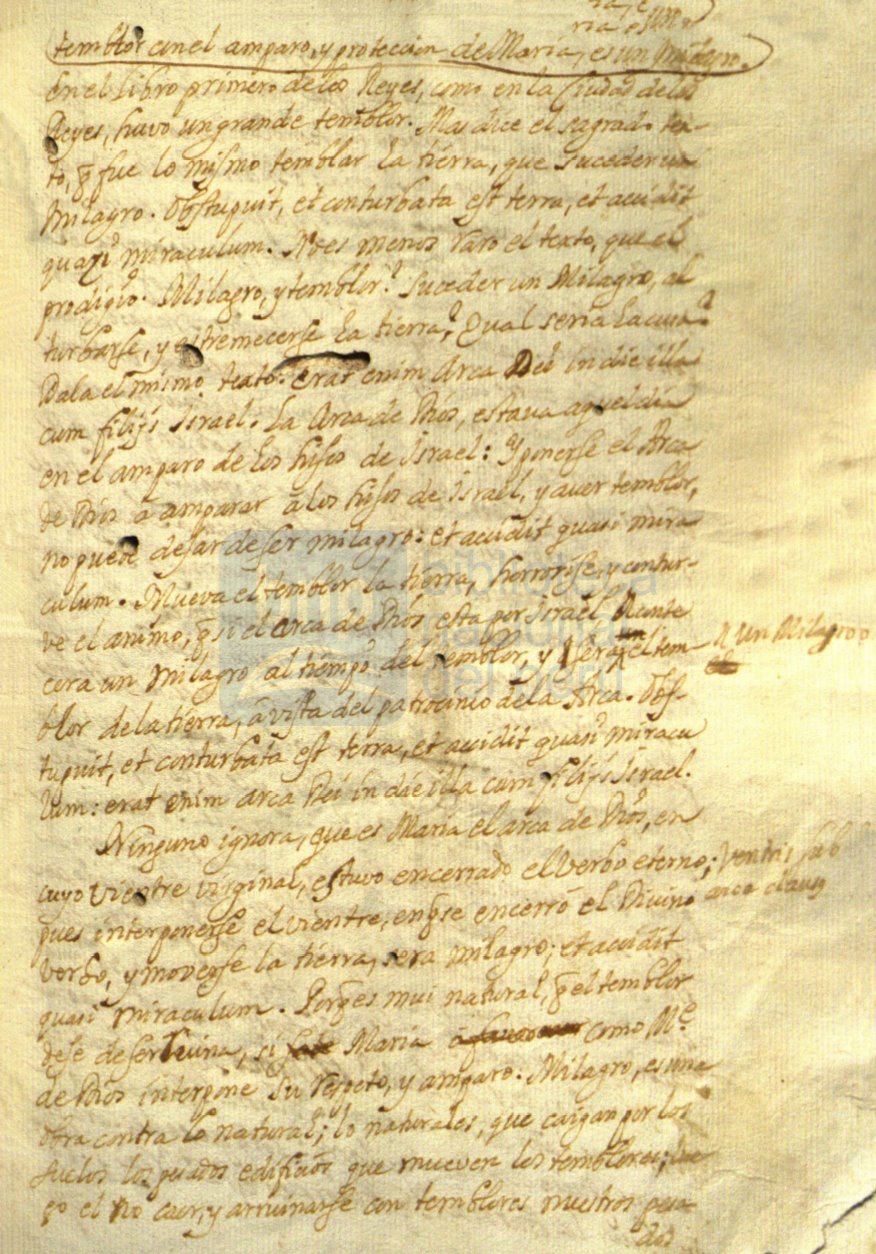 temblor con el amparo, y proteccion de Maria, es un milagro.
En el Libro primero de los Reyes, como en la Ciudad de los
Reyes, huvo un grande temblor. Mas dice el sagrado tex-
to, q̃ fue lo mismo temblar la tierra, que suceder un
milagro. Obstupuit, et conturbata est terra, et accidit
quasi miraculum. No es menos raro el texto, que el
prodigio. Milagro, y temblor? Suceder un Milagro, al
turbarse, y estremecerse la tierra? Qual seria la causa?
Dala el mismo texto: Erat enim Arca Dei in die illa
cum filijs Israel. La Arca de Dios, estava aquel dia
en el amparo de los hijos de Israel: Y ponerse el Arca
de Dios a amparar a los hijos de Israel, y aver temblor,
no puede dejar de ser milagro: et accidit quasi mira
culum. Mueva el temblor la tierra, horrorise, y contur-
ve el animo, q̃ si el arca de Dios esta por Israel, Aconte
cera un milagro al tiempo del temblor, y sera el tem
un Milagro
blor de la tierra, a vista del patrocinio de la Arca. Obs-
tupuit, et conturbata est terra, et accidit quasi miracu
lum: erat enim arca Dei in die illa cum filijs Israel.
Ninguno ignora, que es Maria el arca de Dios, en
cuyo vientre virginal, estuvo encerrado el Verbo eterno; Ventris sub
arca claus
pues interponerse el vientre, en q̃ se encerró el Divino
Verbo, y moverse la tierra, sera milagro; et accidit
quasi miraculum. Porq̃ es mui natural, q̃ el temblor
deje de ser ruina, si Maria como M.e
de Dios interpone su respeto, y amparo. Milagro, es una
obra contra lo natural; lo naturales, que caigan por los
suelos los pesados edificios que mueven los temblores; lue
go el no caer, y arruinarse con temblores nuestros pesa
dos